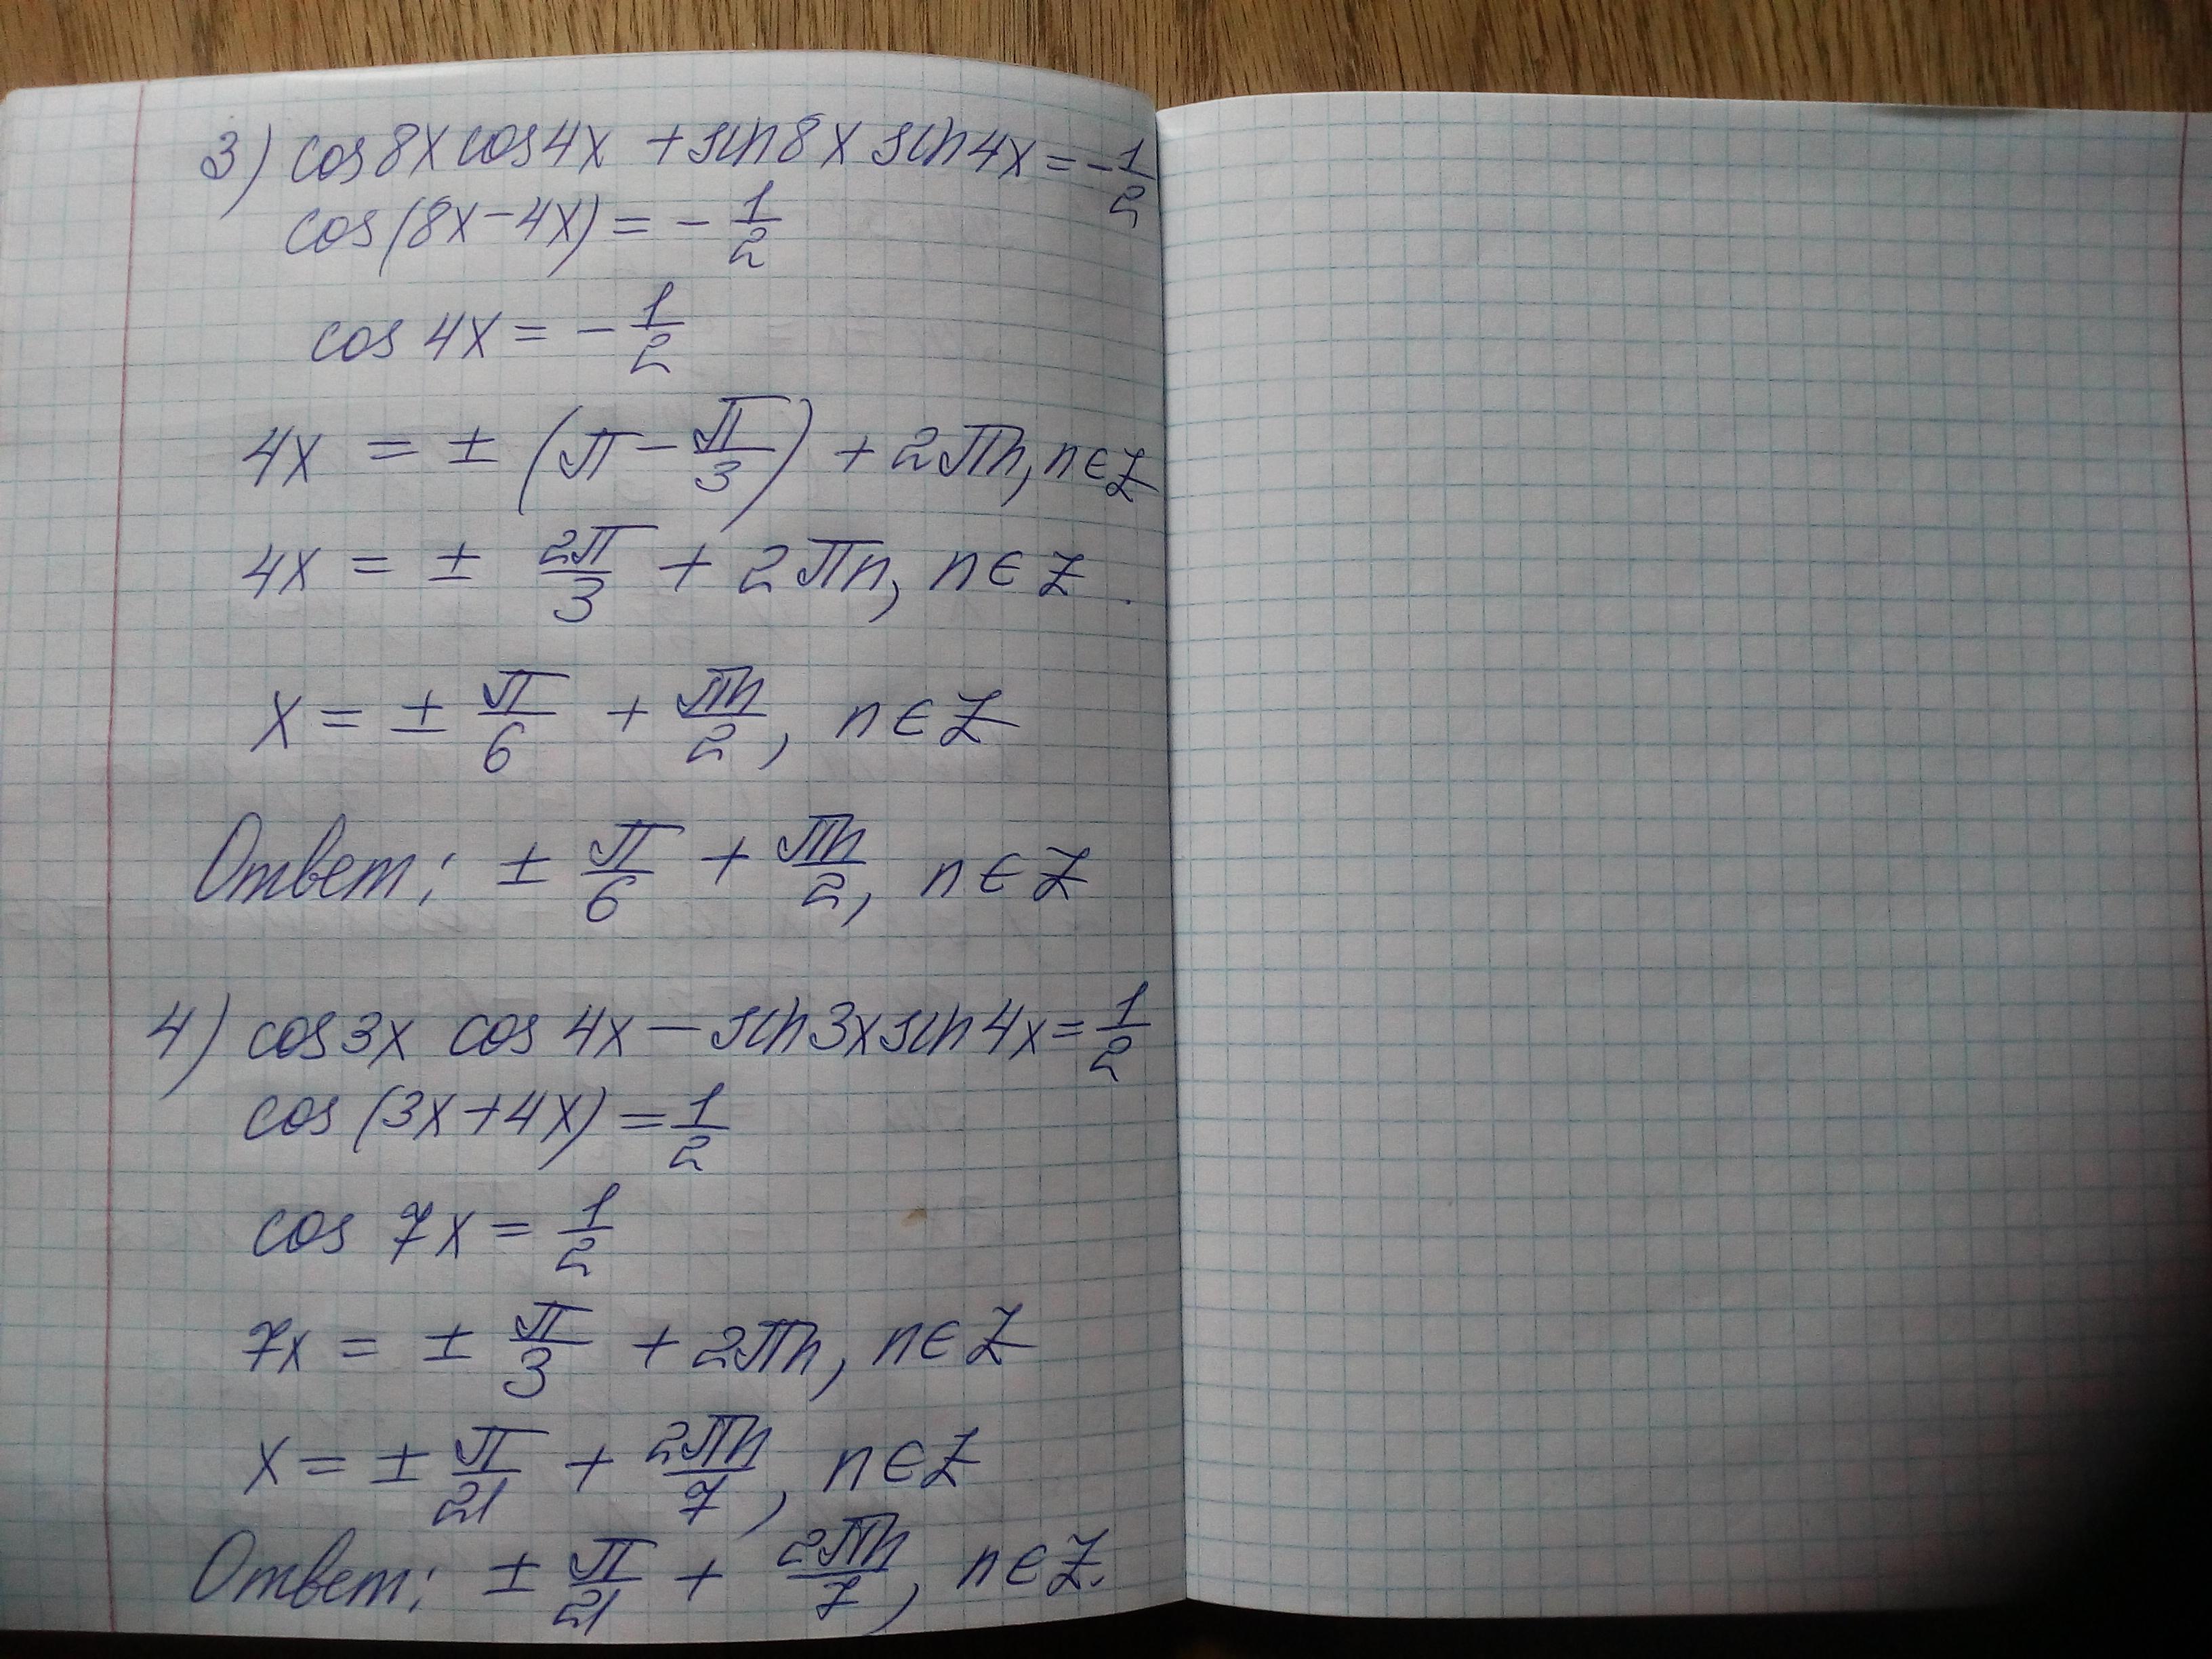 3) cos8x cos4x + sin8x sin4x = -1/2
cos(8x-4x) = - 1/2
cos 4x = - 1/2
4x = ± (π - π/3) + 2πn, n∈Z
4x = ± 2π/3 + 2πn, n∈Z.
x = ± π/6 + πn/2, n∈Z
Ответ: ± π/6 + πn/2, n∈Z
4) cos3x cos 4x - sin3x sin4x = 1/2
cos (3x+4x) = 1/2
cos 7x = 1/2
7x = ± π/3 + 2πn, n∈Z
x = ± π/21 + 2πn/7, n∈Z
Ответ: ± π/21 + 2πn/7, n∈Z.